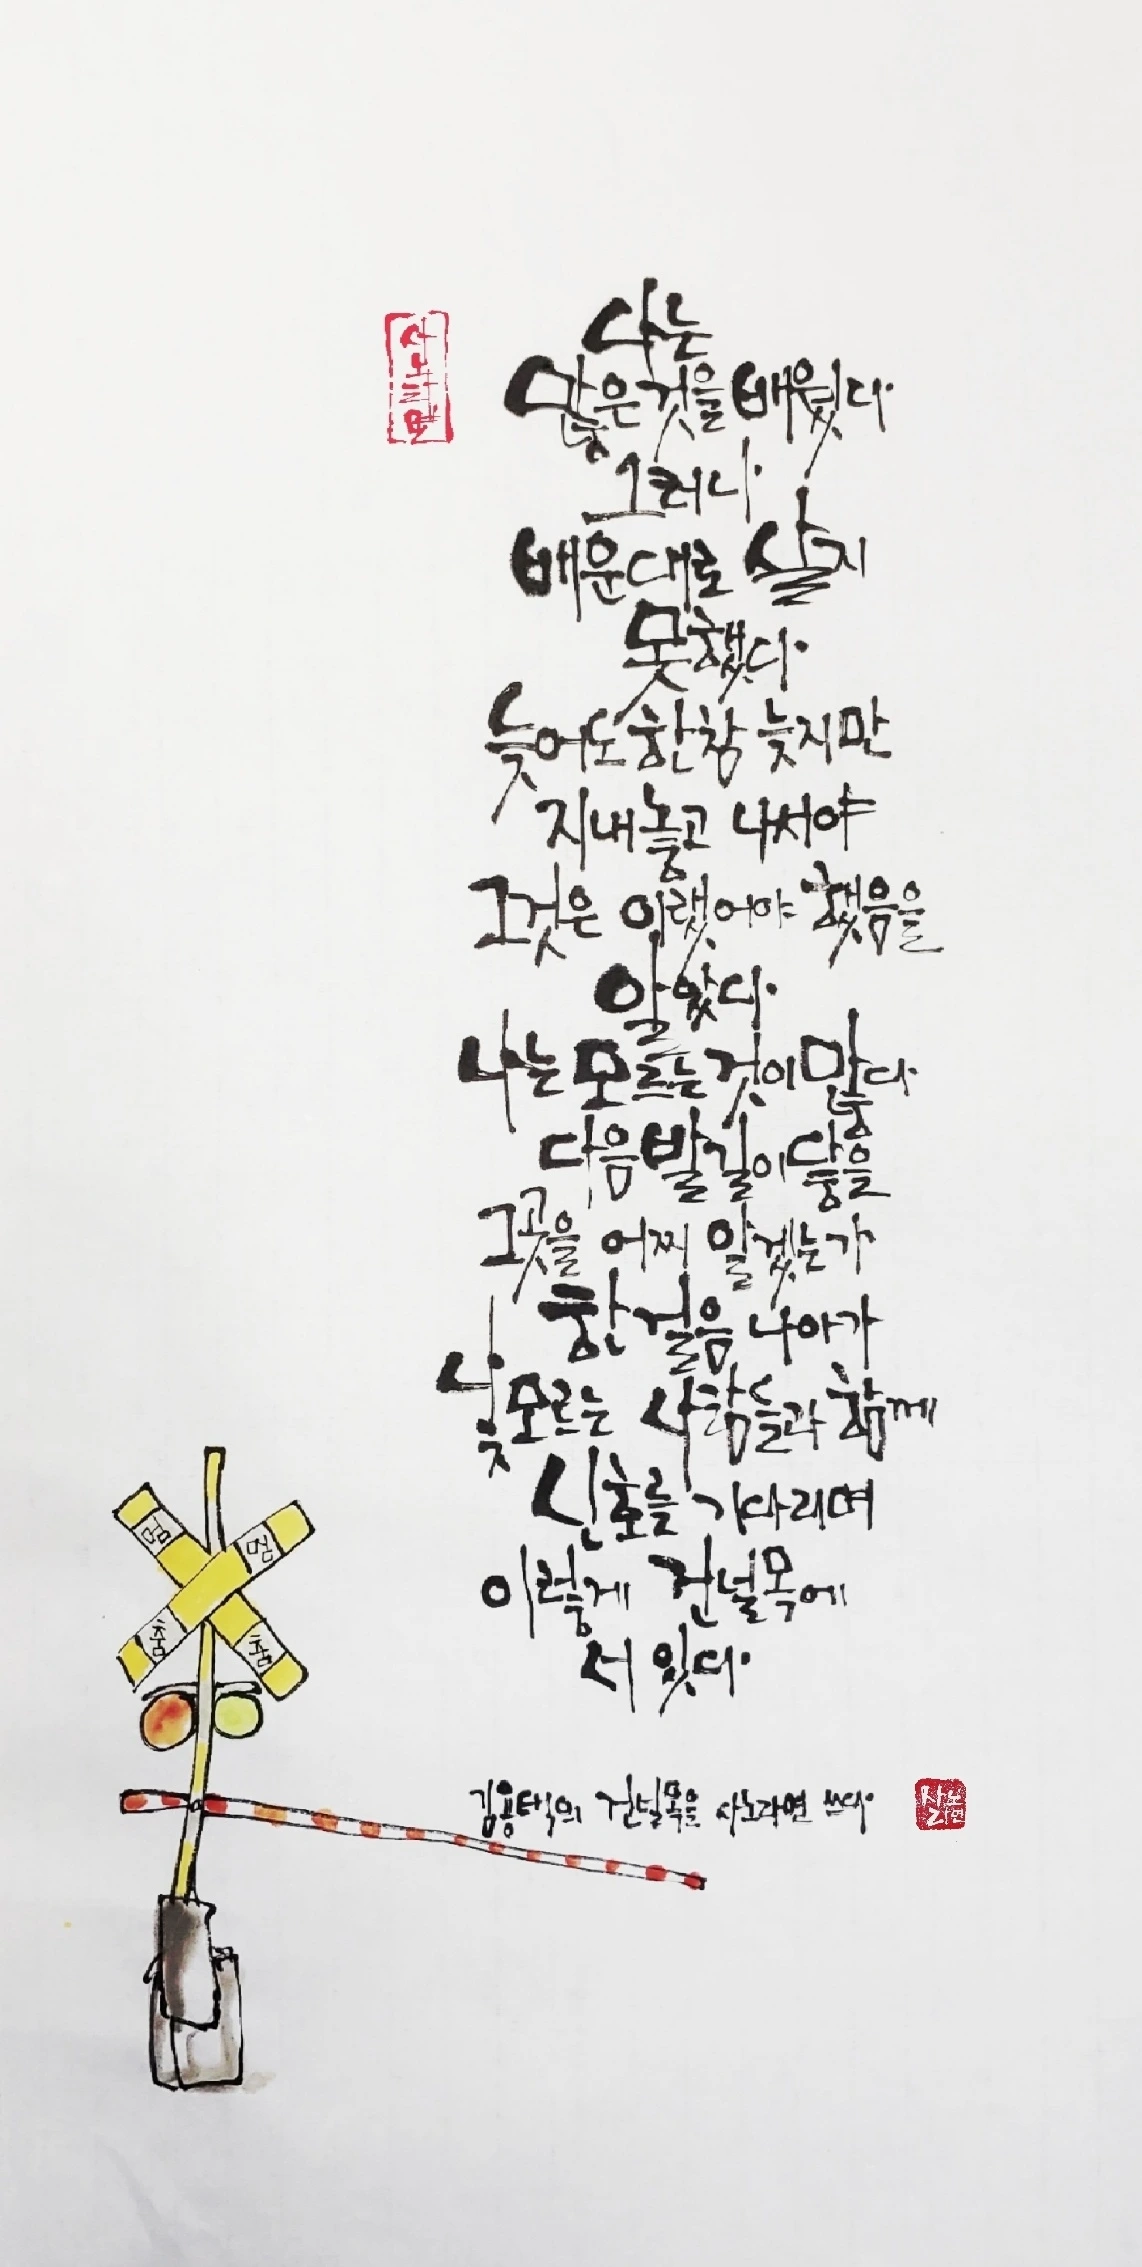 사노라면
나는
많은 것을 배웠다.
그러나
배운대로 살지
못했다.
늦어도 한참 늦지만
지내놓고 나서야
그것은 이랬어야 했음을
알았다.
나는 모르는 것이 많다
다음 발길이 닿을
그곳을 어찌 알겠는가
한 걸음 나아가
낯모르는 사람들과 함께
신호를 기다리며
이렇게 건널목에
서 있다.
멈 멈
춤 춤
김용택의 건널목을 사노라면 쓰다.
사노라면